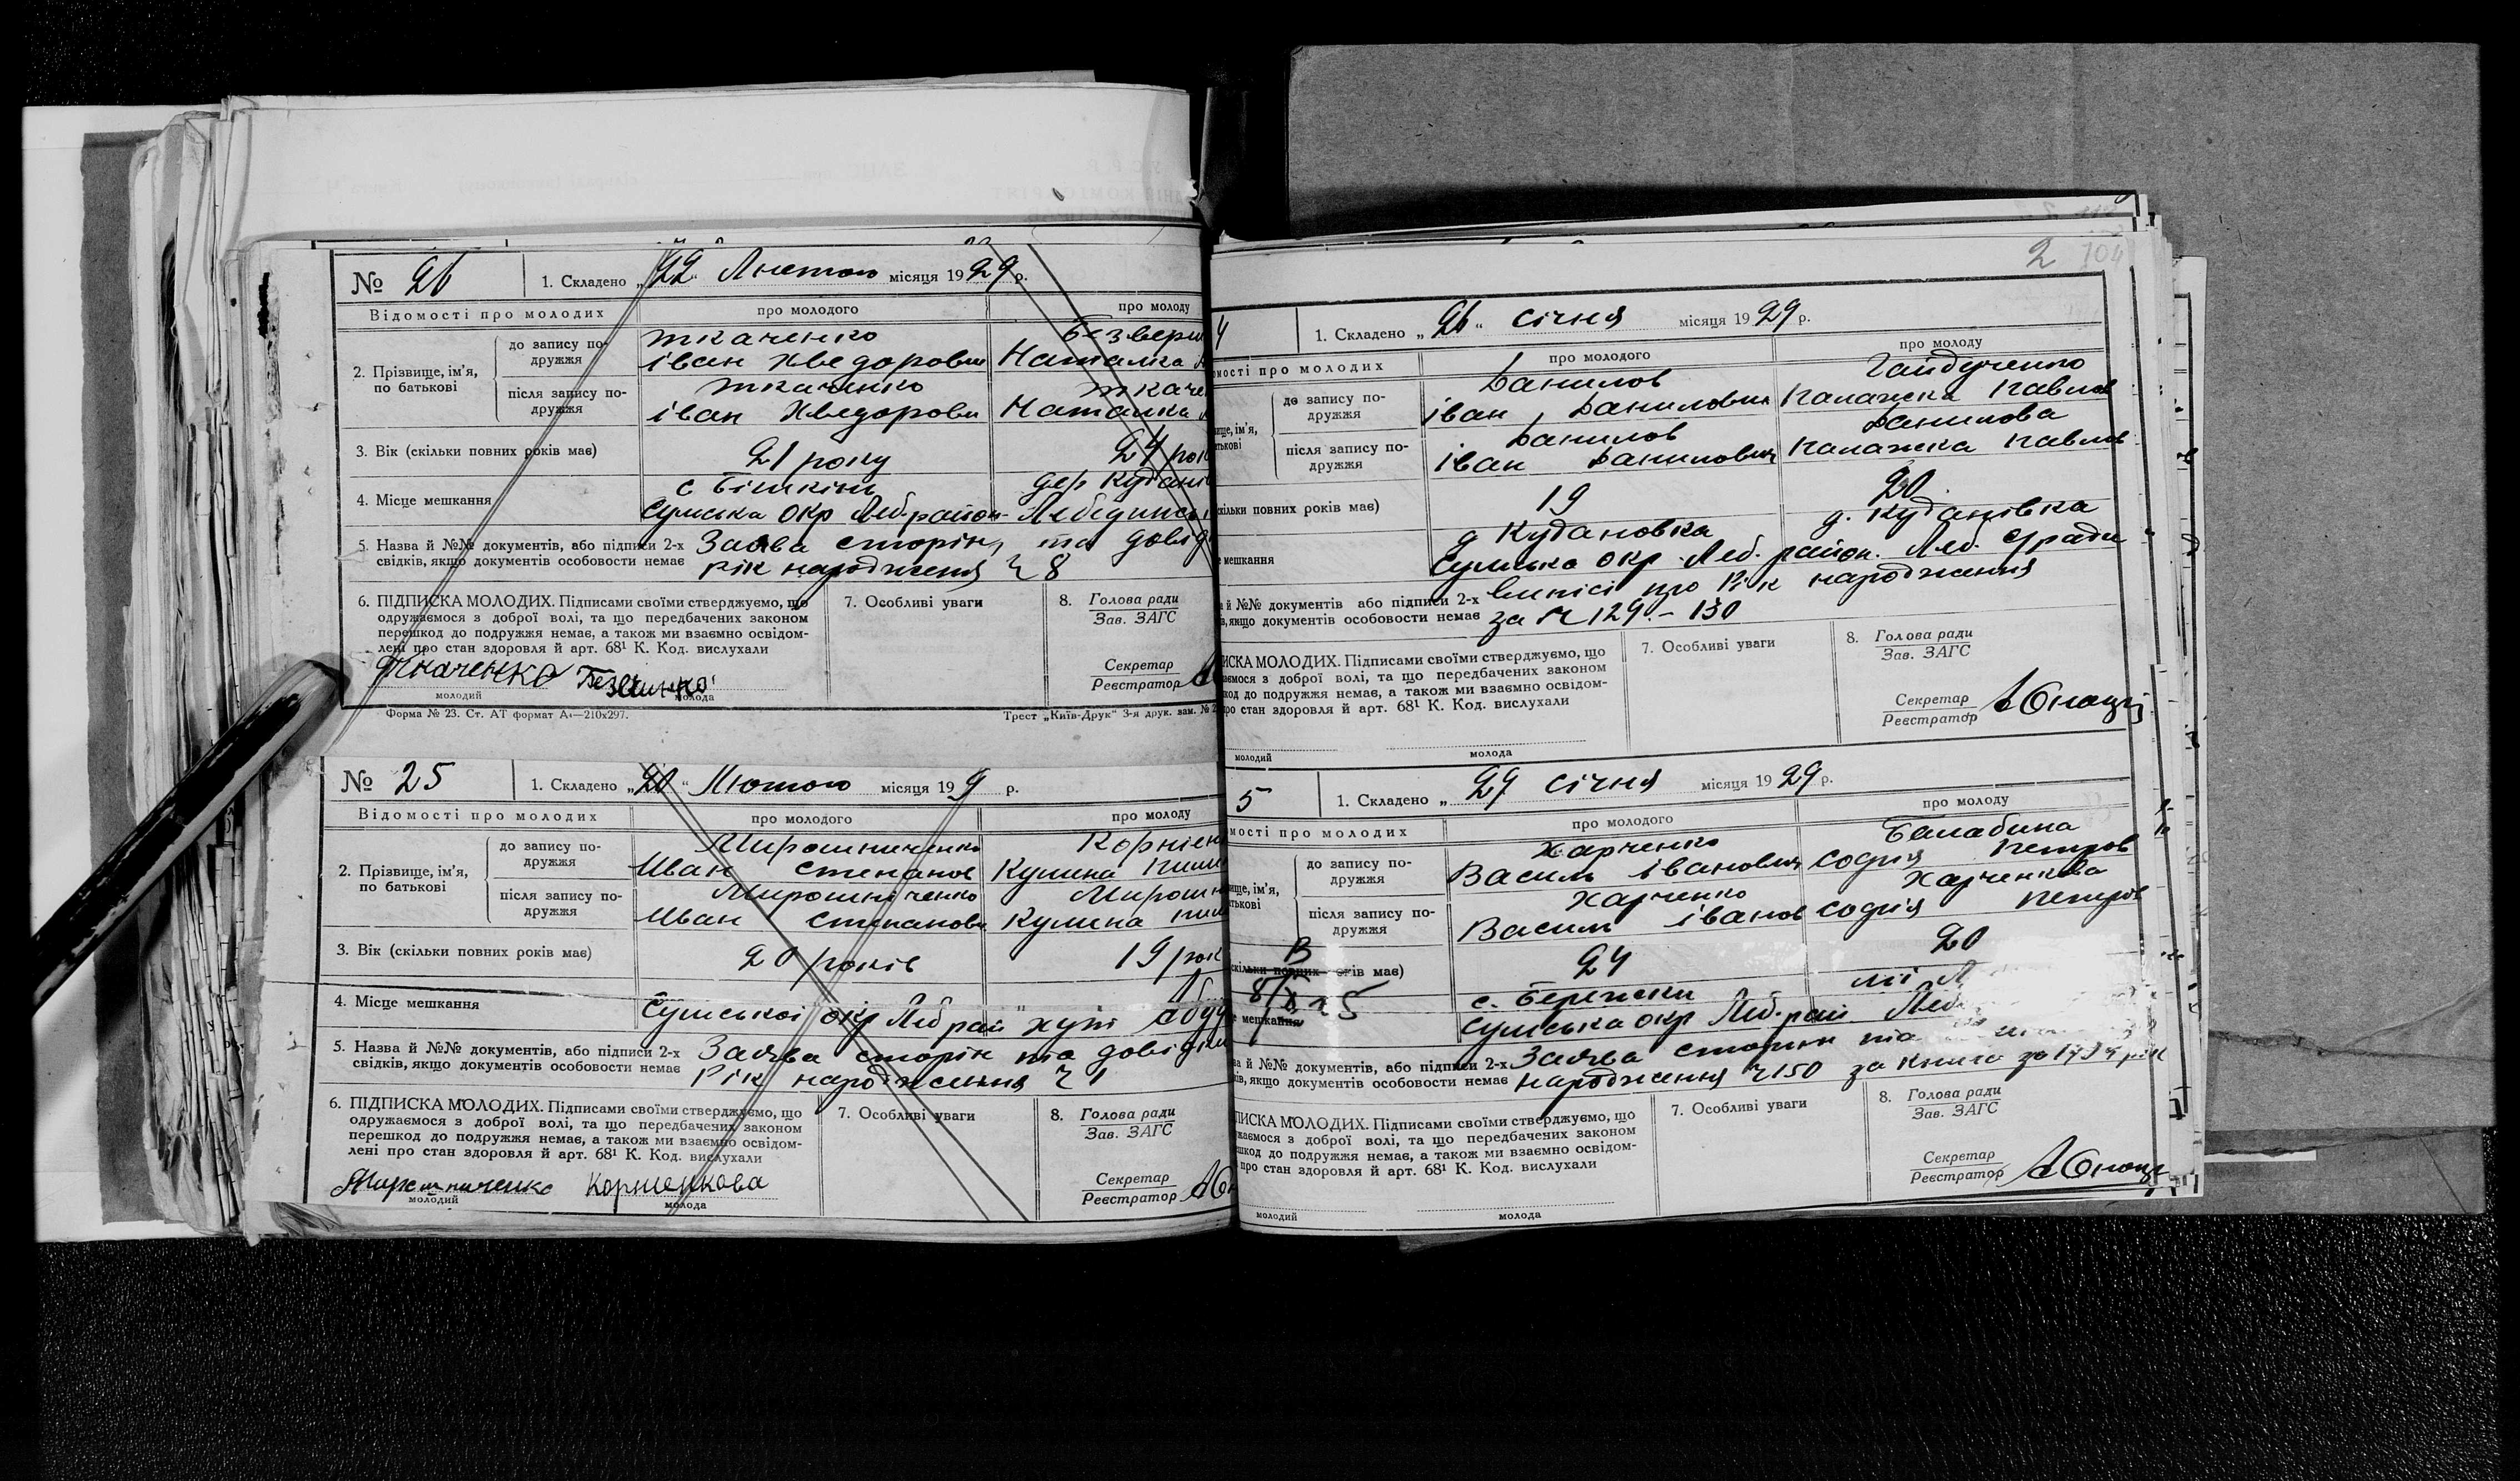 № 26 1. Складено „22" Лютого місяця 1929 р.
Відомості про молодих про молодого про молоду
2. Прізвище, ім'я, по батькові
до запису по-дружжя Ткаченко Безвери
Іван Хведорови Наталка
після запису по-дружжя Ткаченко Ткаче
Іван Хведорови Наталка
3. Вік (скільки повних років має) 21 року 24 рок
4. Місце мешкання с Бішкінь дер Кудані
Сумська окр Леб район Лебединсь
5. Назва й №№ документів, або підписи 2-х Заява сторін та довід
свідків, якщо документів особовости немає рік народження 8
6. ПІДПИСКА МОЛОДИХ. Підписами своїми стверджуємо, що 7. Особливі уваги 8. Голова ради
одружаємося з доброї волі, та що передбачених законом Зав. ЗАГС
перешкод до подружжя немає, а також ми взаємно освідом-
лені про стан здоровля й арт. 68¹ К. Код. вислухали Секретар
Ткаченко Реєстратор
молодий молода
Форма № 23. Ст. АТ формат А₄—210х297. Трест „Київ-Друк" 3-я друк. зам. №
№ 25 1. Складено „20" Лютого місяця 199 р.
Відомості про молодих про молодого про молоду
2. Прізвище, ім'я, по батькові
до запису по-дружжя Мирошниченко Корнієн
Иван Степанов Кулина
після запису по-дружжя Мирошніченко Мирошн
Иван Степанови Кулина
3. Вік (скільки повних років має) 20 років 19 рок
4. Місце мешкання
Сумської окр Леб рай хут
5. Назва й №№ документів, або підписи 2-х Заява сторін та довідки
свідків, якщо документів особовости немає Рік народження 1
6. ПІДПИСКА МОЛОДИХ. Підписами своїми стверджуємо, що 7. Особливі уваги 8. Голова ради
одружаємося з доброї волі, та що передбачених законом Зав. ЗАГС
перешкод до подружжя немає, а також ми взаємно освідом-
лені про стан здоровля й арт. 68¹ К. Код. вислухали Секретар
Мирошниченко Корниенкова Реєстратор
молодий молода
2 104
4 1. Складено „26" січня місяця 1929 р.
мості про молодих про молодого про молоду
до запису по-дружжя Данилов Гайдученко
Іван Данилович Палажка Павлов
ище, ім'я,
тькові
після запису по-дружжя Данилов Данилова
Іван Данилович Палажка Павлов
кільки повних років має) 19 20
мешкання д Кудановка д. Куданівка
Сумська окр Леб. район. Леб. с/ради
й №№ документів або підписи 2-х виписі про Рік народження
якщо документів особовости немає за № 129 - 130
ИСКА МОЛОДИХ. Підписами своїми стверджуємо, що 7. Особливі уваги 8. Голова ради
аємося з доброї волі, та що передбачених законом Зав. ЗАГС
код до подружжя немає, а також ми взаємно освідом-
ро стан здоровля й арт. 68¹ К. Код. вислухали Секретар
Реєстратор
молодий молода
5 1. Складено „27 січня місяця 1929 р.
мості про молодих про молодого про молоду
до запису по-дружжя Харченко Балабина
Василь Іванович Софія Петров
ище, ім'я,
тькові
після запису по-дружжя Харченко Харченкова
Василь Іванов Софія Петров
кільки повних років має) 24 20
мешкання с. Бережки
Сумська окр Леб. рай Леб
а й №№ документів, або підписи 2-х Заява сторін та
ків, якщо документів особовости немає народження 150 за книгою за
ПИСКА МОЛОДИХ. Підписами своїми стверджуємо, що 7. Особливі уваги 8. Голова ради
жаємося з доброї волі, та що передбачених законом Зав. ЗАГС
шкод до подружжя немає, а також ми взаємно освідом-
про стан здоровля й арт. 68¹ К. Код. вислухали Секретар
Реєстратор
молодий молода